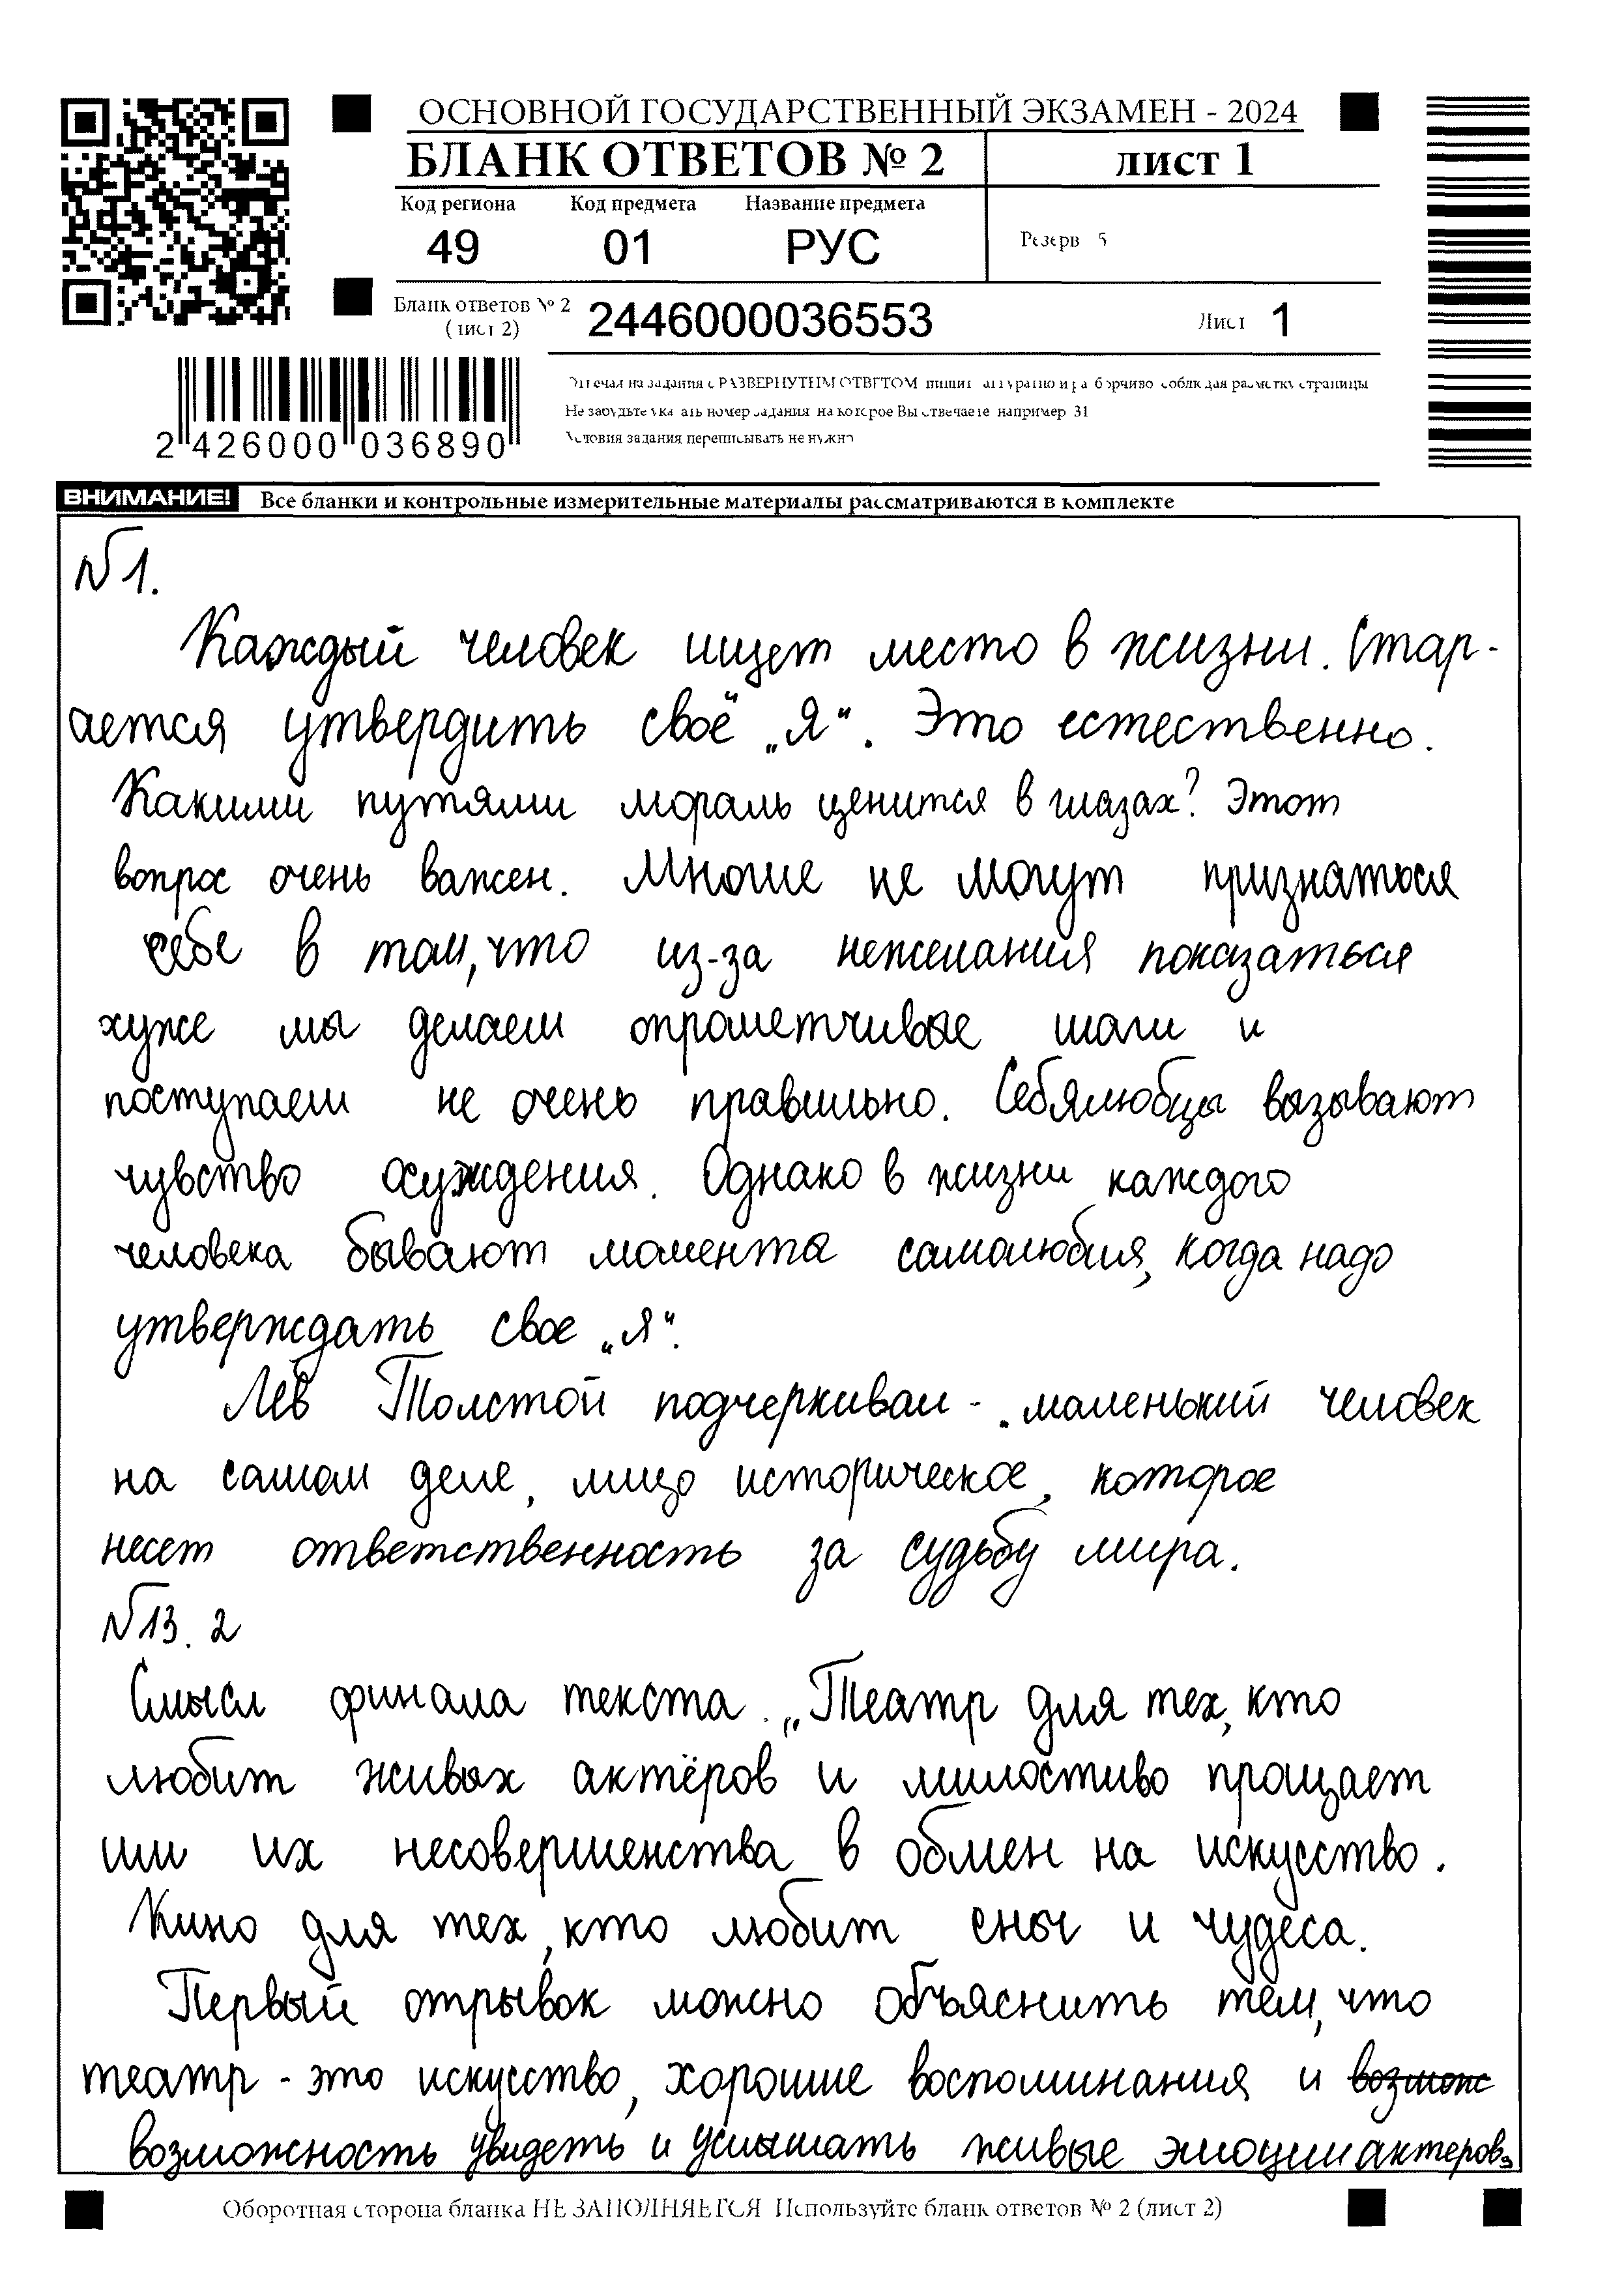 ОСНОВНОЙ ГОСУДАРСТВЕННЫЙ ЭКЗАМЕН - 2024
БЛАНК ОТВЕТОВ № 2 лист 1
Код региона Код предмета Название предмета
49 01 РУС Резерв 5
Бланк ответов № 2 (лист 2) 2446000036553 Лист 1
Отвечая на задания с РАЗВЕРНУТЫМ ОТВЕТОМ пишите аккуратно и разборчиво соблюдая разметку страницы
Не забудьте указать номер задания на которое Вы отвечаете например 31
Условия задания переписывать не нужно
2 426000 036890
ВНИМАНИЕ! Все бланки и контрольные измерительные материалы рассматриваются в комплекте
№1.
Каждый человек ищет место в жизни. Стар-
ается утвердить своё „Я“. Это естественно.
Какими путями мораль ценится в глазах? Этот
вопрос очень важен. Многие не могут признаться
себе в том, что из-за нежелания показаться
хуже мы делаем опрометчивые шаги и
поступаем не очень правильно. Себялюбцы вызывают
чувство осуждения. Однако в жизни каждого
человека бывают момента самолюбия, когда надо
утверждать свое „я“.
Лев Толстой подчеркивал - маленький человек
на самом деле, лицо историческое, которое
несет ответственность за судьбу мира.
№13.2
Смысл финала текста. „Театр для тех, кто
любит живых актёров и милостиво прощает
им их несовершенства в обмен на искусство.
Кино для тех, кто любит сны и чудеса.
Первый отрывок можно объяснить тем, что
театр - это искусство, хорошие воспоминания и возмож
возможность увидеть и услышать живые эмоции актеров.
Оборотная сторона бланка НЕ ЗАПОЛНЯЕТСЯ Используйте бланк ответов № 2 (лист 2)